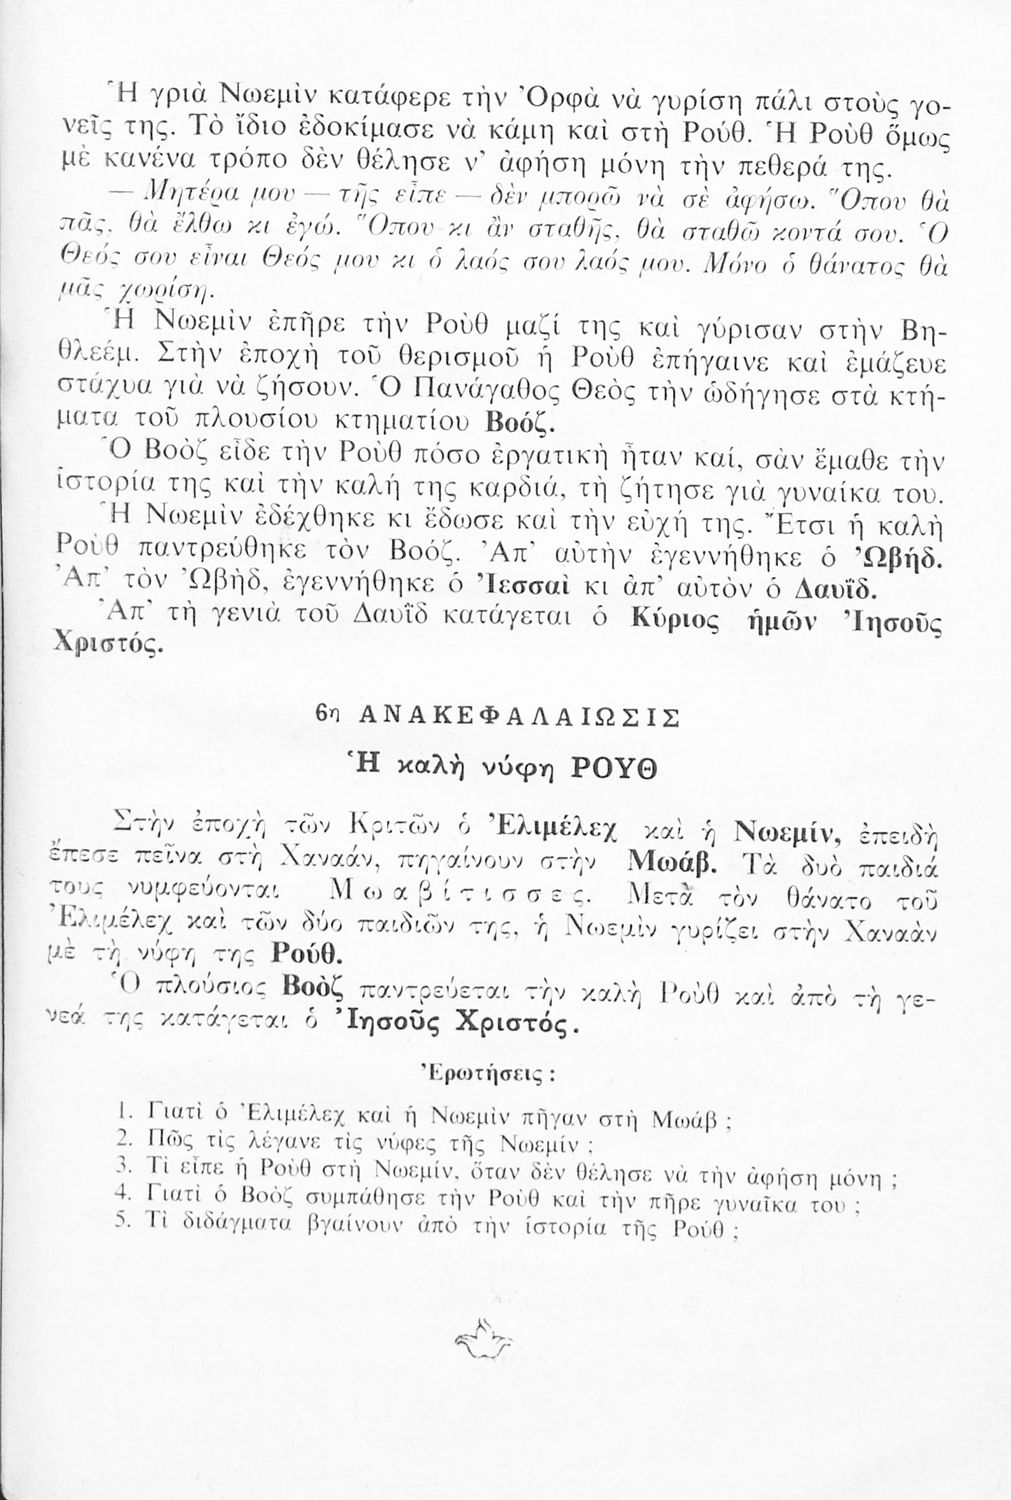 Ἡ γριὰ Νωεμὶν κατάφερε τὴν Ὀρφὰ νὰ γυρίση πάλι στοὺς γο-
νεῖς της. Τὸ ἴδιο ἐδοκίμασε νὰ κάμη καὶ στὴ Ρούθ. Ἡ Ροὺθ ὅμως
μὲ κανένα τρόπο δὲν θέλησε ν’ ἀφήση μόνη τὴν πεθερά της.
— Μητέρα μου — τῆς εἶπε — δὲν μπορῶ νὰ σὲ ἀφήσω. Ὅπου θὰ
πᾶς, θὰ ἔλθω κι ἐγώ. Ὅπου κι ἂν σταθῆς, θὰ σταθῶ κοντά σου. Ὁ
Θεός σου εἶναι Θεός μου κι ὁ λαός σου λαός μου. Μόνο ὁ θάνατος θὰ
μᾶς χωρίση.
Ἡ Νωεμὶν ἐπῆρε τὴν Ροὺθ μαζί της καὶ γύρισαν στὴν Βη-
θλεέμ. Στὴν ἐποχὴ τοῦ θερισμοῦ ἡ Ροὺθ ἐπήγαινε καὶ ἐμάζευε
στάχυα γιὰ νὰ ζήσουν. Ὁ Πανάγαθος Θεὸς τὴν ὡδήγησε στὰ κτή-
ματα τοῦ πλουσίου κτηματίου Βοόζ.
Ὁ Βοὸζ εἶδε τὴν Ροὺθ πόσο ἐργατικὴ ἦταν καί, σὰν ἔμαθε τὴν
ἱστορία της καὶ τὴν καλή της καρδιά, τὴ ζήτησε γιὰ γυναίκα του.
Ἡ Νωεμὶν ἐδέχθηκε κι ἔδωσε καὶ τὴν εὐχή της. Ἔτσι ἡ καλὴ
Ροὺθ παντρεύθηκε τὸν Βοόζ. Ἀπ’ αὐτὴν ἐγεννήθηκε ὁ Ὠβήδ.
Ἀπ’ τὸν Ὠβὴδ, ἐγεννήθηκε ὁ Ἰεσσαὶ κι ἀπ’ αὐτὸν ὁ Δαυΐδ.
Ἀπ’ τὴ γενιὰ τοῦ Δαυΐδ κατάγεται ὁ Κύριος ἡμῶν Ἰησοῦς
Χριστός.
6η ΑΝΑΚΕΦΑΛΑΙΩΣΙΣ
Ἡ καλὴ νύφη ΡΟΥΘ
Στὴν ἐποχὴ τῶν Κριτῶν ὁ Ἐλιμέλεχ καὶ ἡ Νωεμίν, ἐπειδὴ
ἔπεσε πεῖνα στὴ Χαναάν, πηγαίνουν στὴν Μωάβ. Τὰ δυὸ παιδιά
τους νυμφεύονται Μωαβίτισσες. Μετὰ τὸν θάνατο τοῦ
Ἐλιμέλεχ καὶ τῶν δύο παιδιῶν της, ἡ Νωεμὶν γυρίζει στὴν Χαναὰν
μὲ τὴ νύφη της Ρούθ.
Ὁ πλούσιος Βοὸζ παντρεύεται τὴν καλὴ Ροὺθ καὶ ἀπὸ τὴ γε-
νεά της κατάγεται ὁ Ἰησοῦς Χριστός.
Ἐρωτήσεις :
1. Γιατὶ ὁ Ἐλιμέλεχ καὶ ἡ Νωεμὶν πῆγαν στὴ Μωάβ ;
2. Πῶς τὶς λέγανε τὶς νύφες τῆς Νωεμίν ;
3. Τὶ εἶπε ἡ Ροὺθ στὴ Νωεμίν, ὅταν δὲν θέλησε νὰ τὴν ἀφήση μόνη ;
4. Γιατὶ ὁ Βοὸζ συμπάθησε τὴν Ροὺθ καὶ τὴν πῆρε γυναῖκα του ;
5. Τὶ διδάγματα βγαίνουν ἀπὸ τὴν ἱστορία τῆς Ρούθ ;